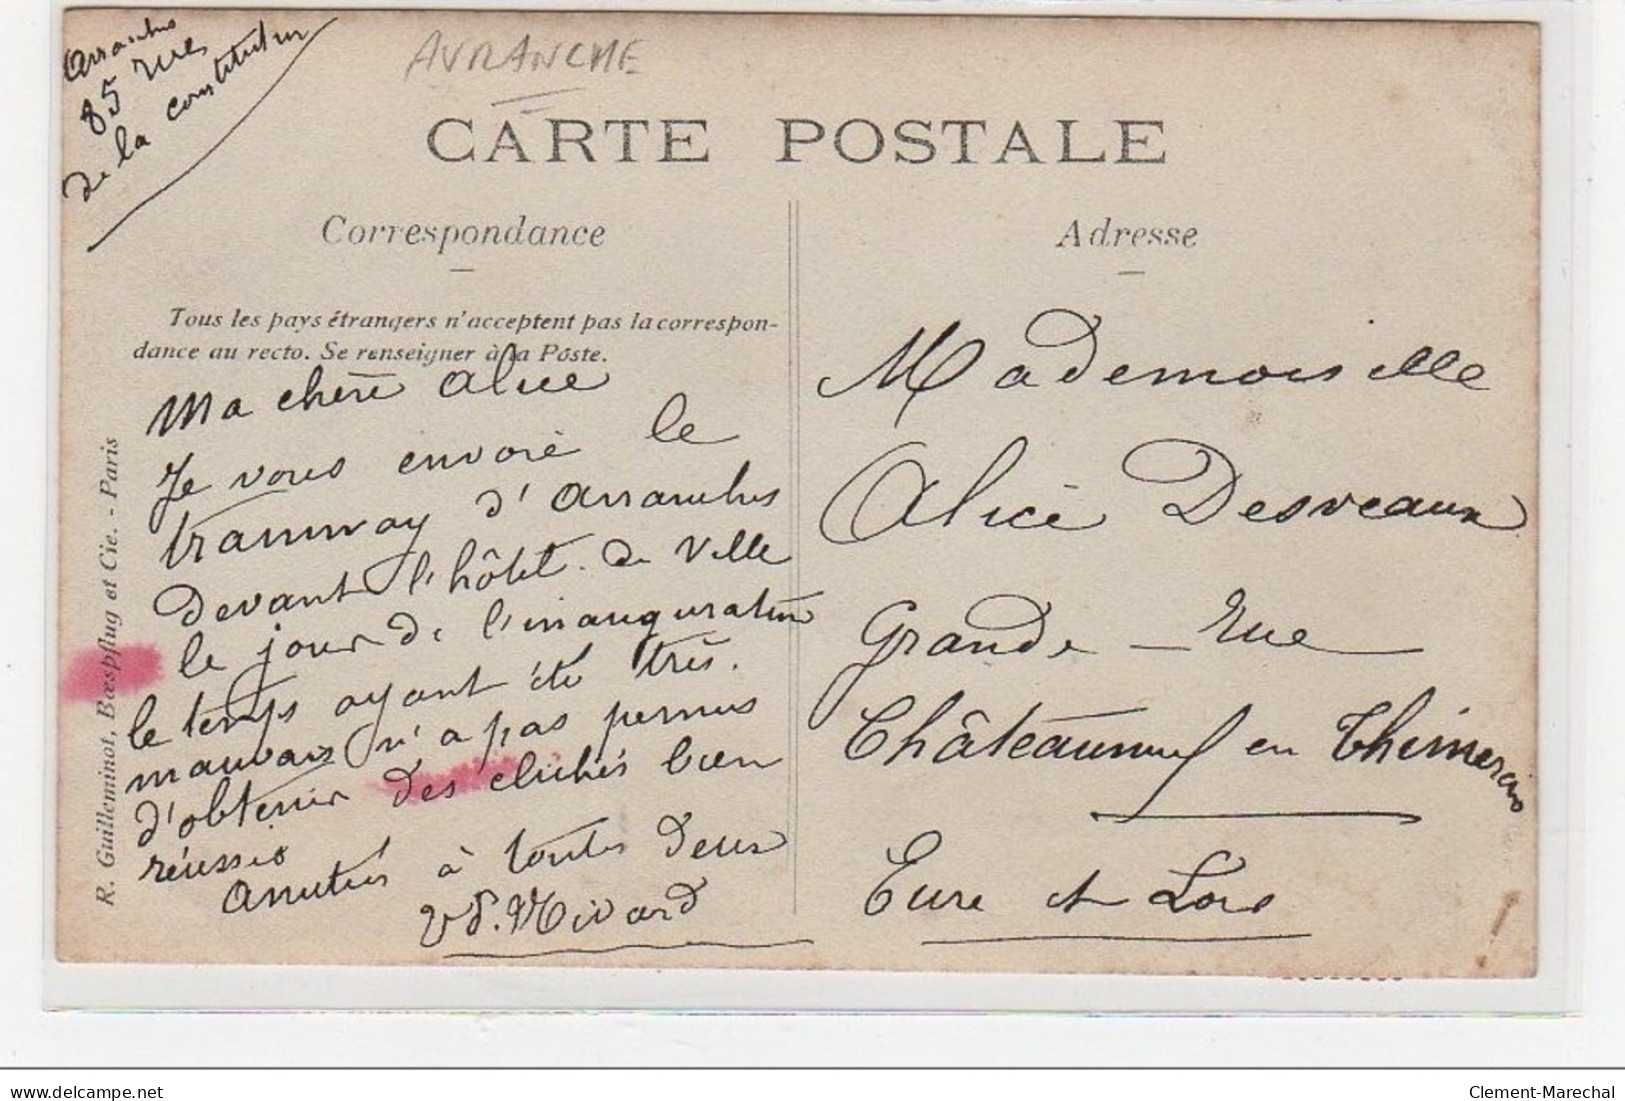 Avranches
85 rue
de la constitution
AVRANCHE
CARTE POSTALE
Correspondance
Tous les pays étrangers n'acceptent pas la correspon-
dance au recto. Se renseigner à la Poste.
Ma chère Alice
Je vous envoie le
tramway d'Avranches
devant l'hôtel de Ville
le jour de l'inauguration
le temps ayant été très
mauvais n'a pas permis
d'obtenir des clichés bien
réussis
Amitiés à toutes deux
R. Guilleminot, Bœspflug et Cie. - Paris
Adresse
Mademoiselle
Alice Desveaux
Grande - rue
Châteauneuf en Thimerais
Eure et Loir
delcampe.net
Clement-Marechal